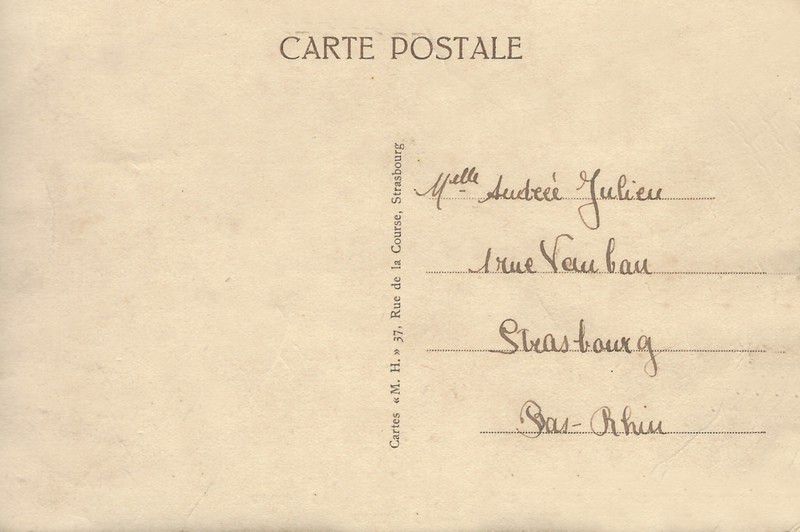 CARTE POSTALE
Cartes « M. H. » 37, Rue de la Course, Strasbourg
Melle Andreé Julien
1 rue Vauban
Strasbourg
Bas-Rhin